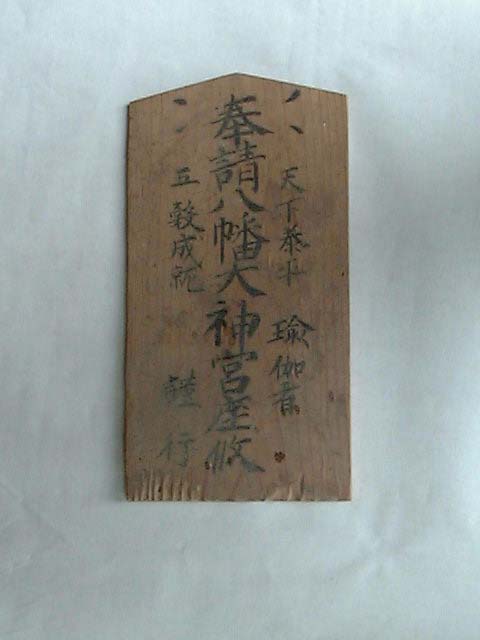 天下泰平
瑜伽者
奉請八幡大神宮座攸
五穀成就
謹行